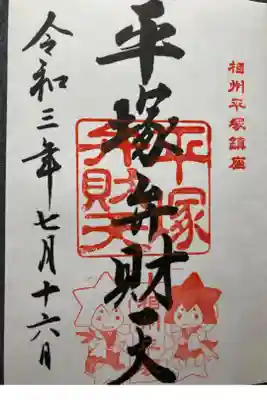 相州平塚鎮座
平塚弁財天
平塚
弁財天
令和三年七月十六日